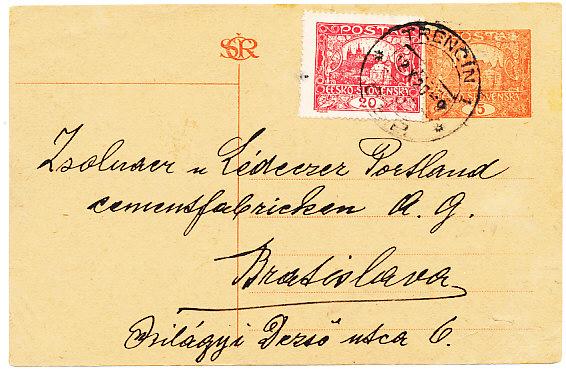 ČSR
POSTA
ČESKO-SLOVENSKÝ
20
POSTA
SLOVENSKÝ
15
TRENČÍN
Zsolnaer u Lédeczer Portland
cementfabriken A. G.
Bratislava
Szilágyi Dezső utca 6.